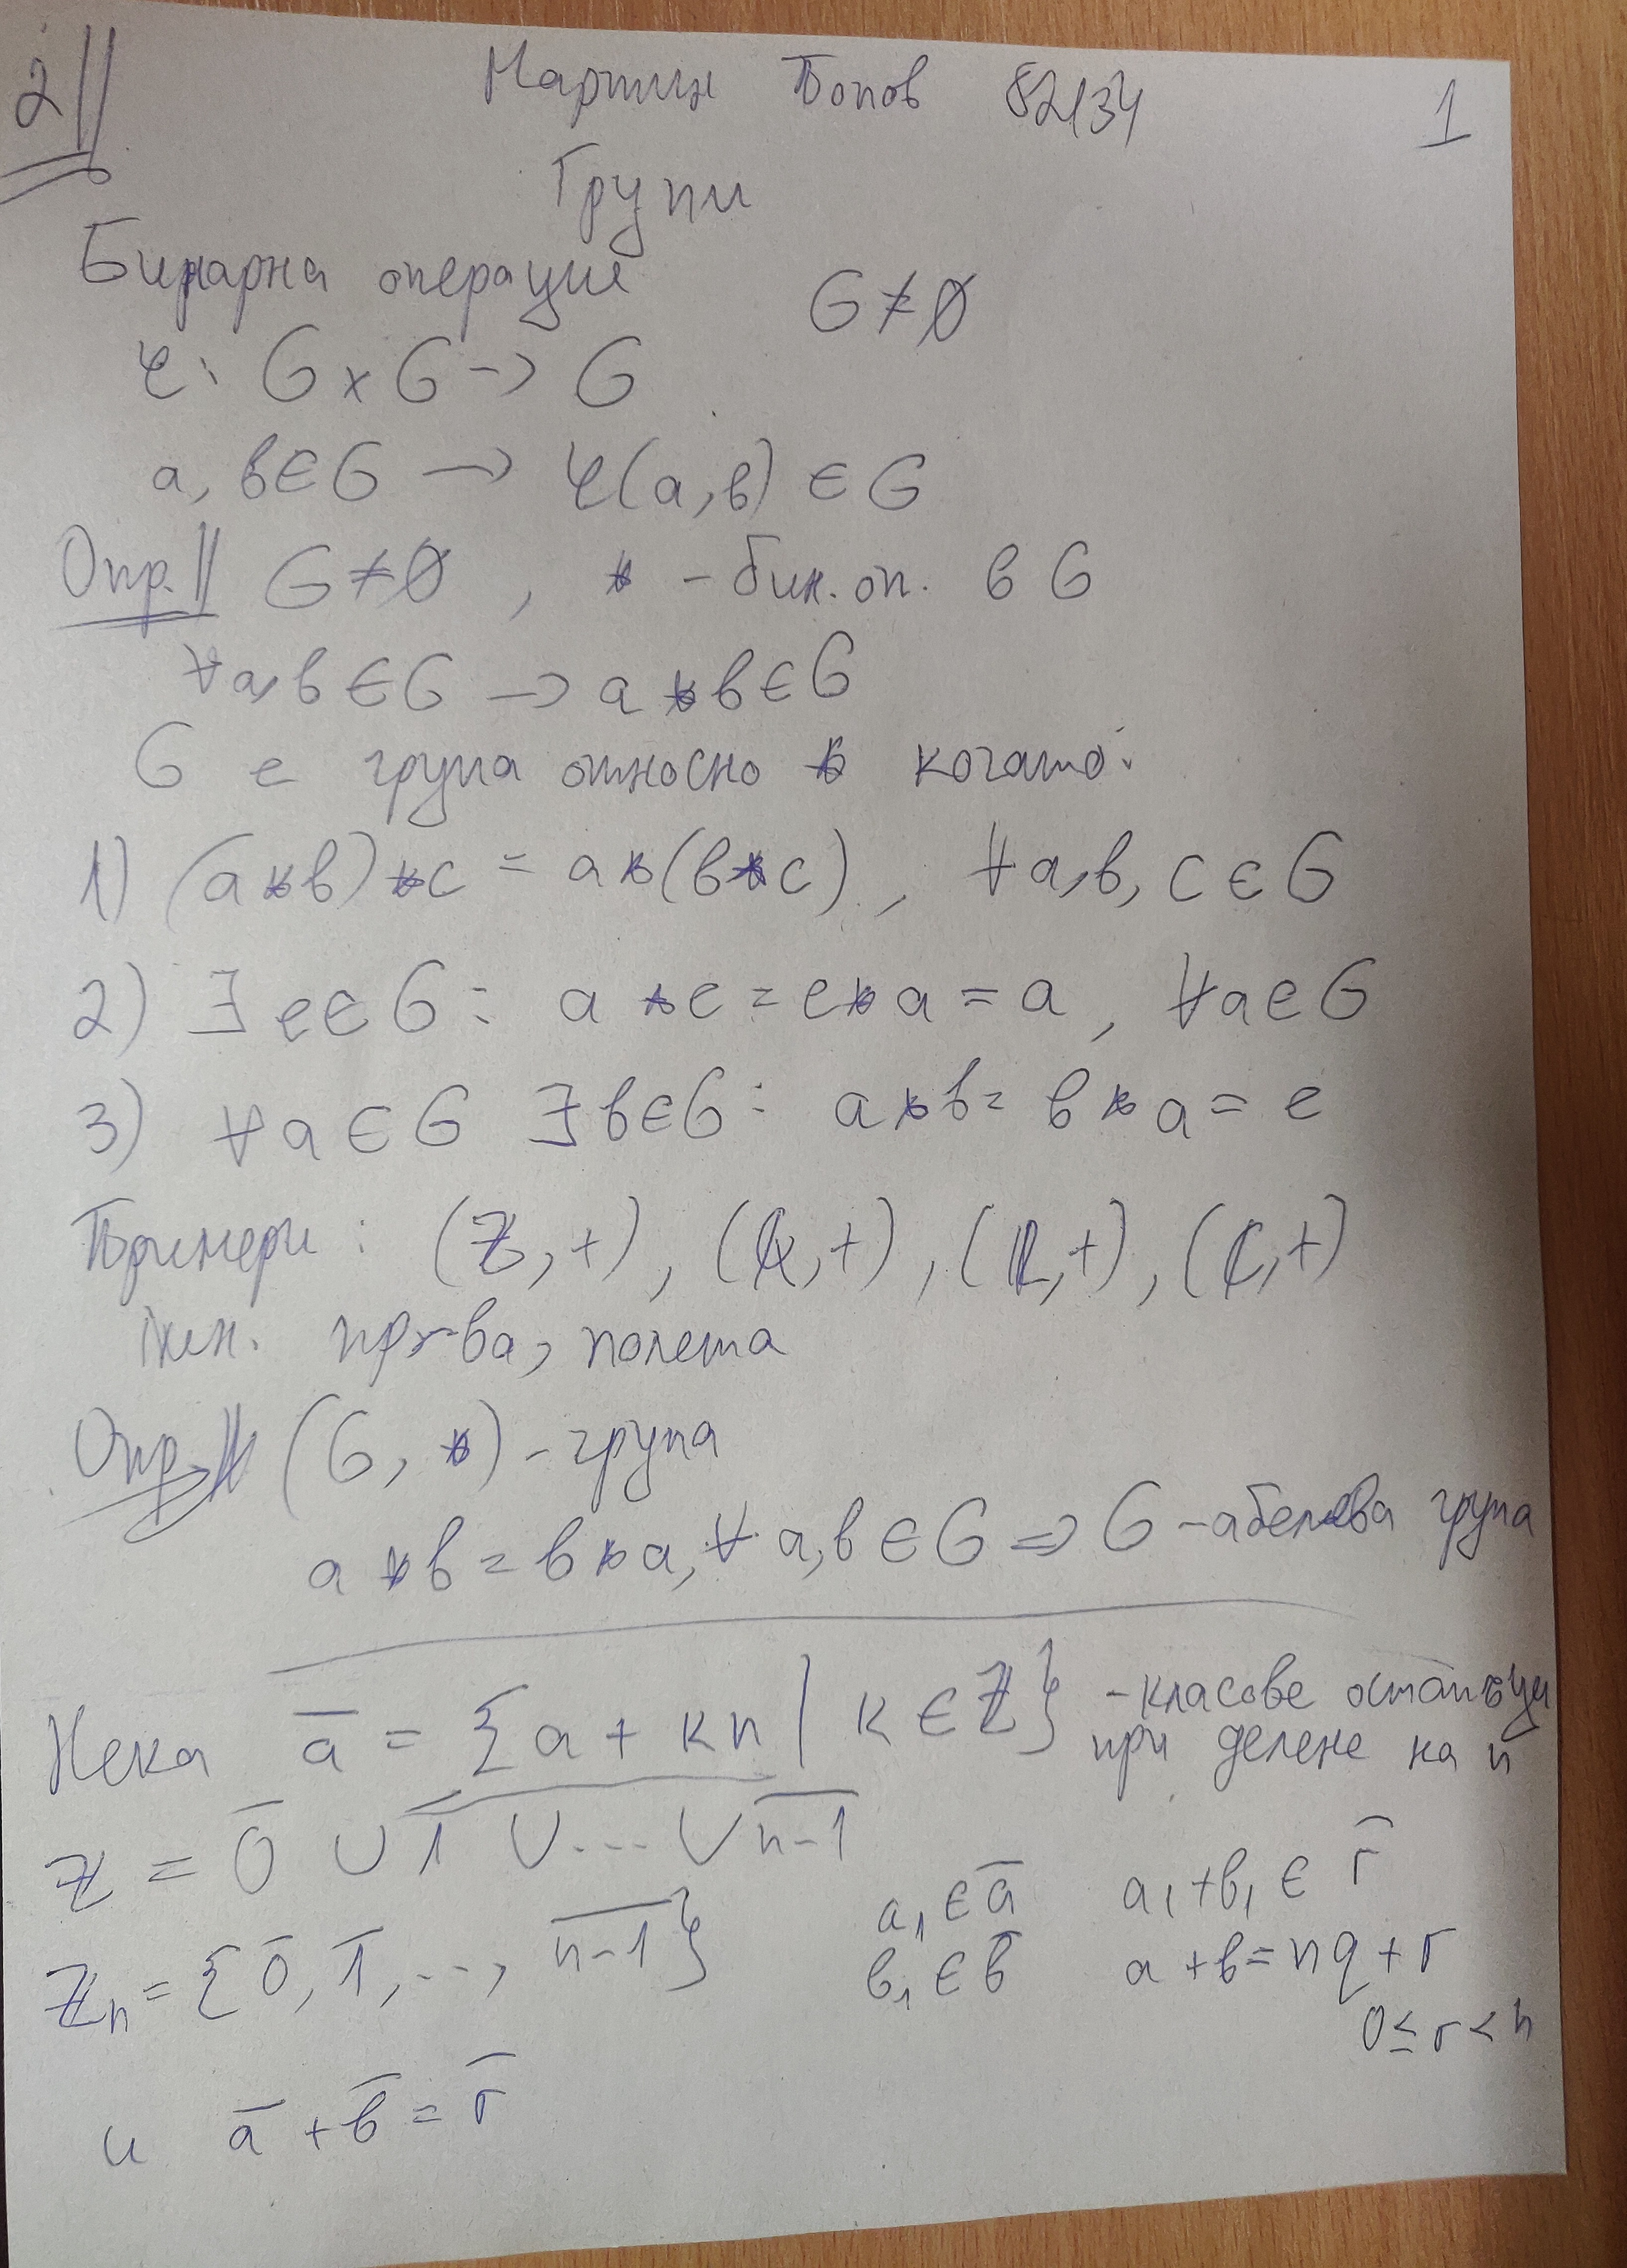 2||
Мартин Попов 82134 1
Групи
Бинарна операция G ≠ ∅
φ: G x G → G
a, b ∈ G → φ(a, b) ∈ G
Опр.|| G ≠ ∅, * - бин. оп. в G
∀a, b ∈ G → a * b ∈ G
G е група относно * когато:
1) (a * b) * c = a * (b * c), ∀a, b, c ∈ G
2) ∃ e ∈ G : a * e = e * a = a, ∀a ∈ G
3) ∀a ∈ G ∃ b ∈ G : a * b = b * a = e
Примери: (ℤ, +), (ℚ, +), (ℝ, +), (ℂ, +)
лин. пр-ва, полета
Опр.|| (G, *) - група
a * b = b * a, ∀ a, b ∈ G ⇒ G - абелева група
Нека a̅ = {a + kn | k ∈ ℤ} - класове остатъци
при делене на n
ℤ = 0̅ ∪ 1̅ ∪ ... ∪ n-1̅
ℤₙ = {0̅, 1̅, ..., n-1̅}
a₁ ∈ a̅ a₁ + b₁ ∈ r̅
b₁ ∈ b̅ a + b = nq + r
0 ≤ r < n
и a̅ + b̅ = r̅